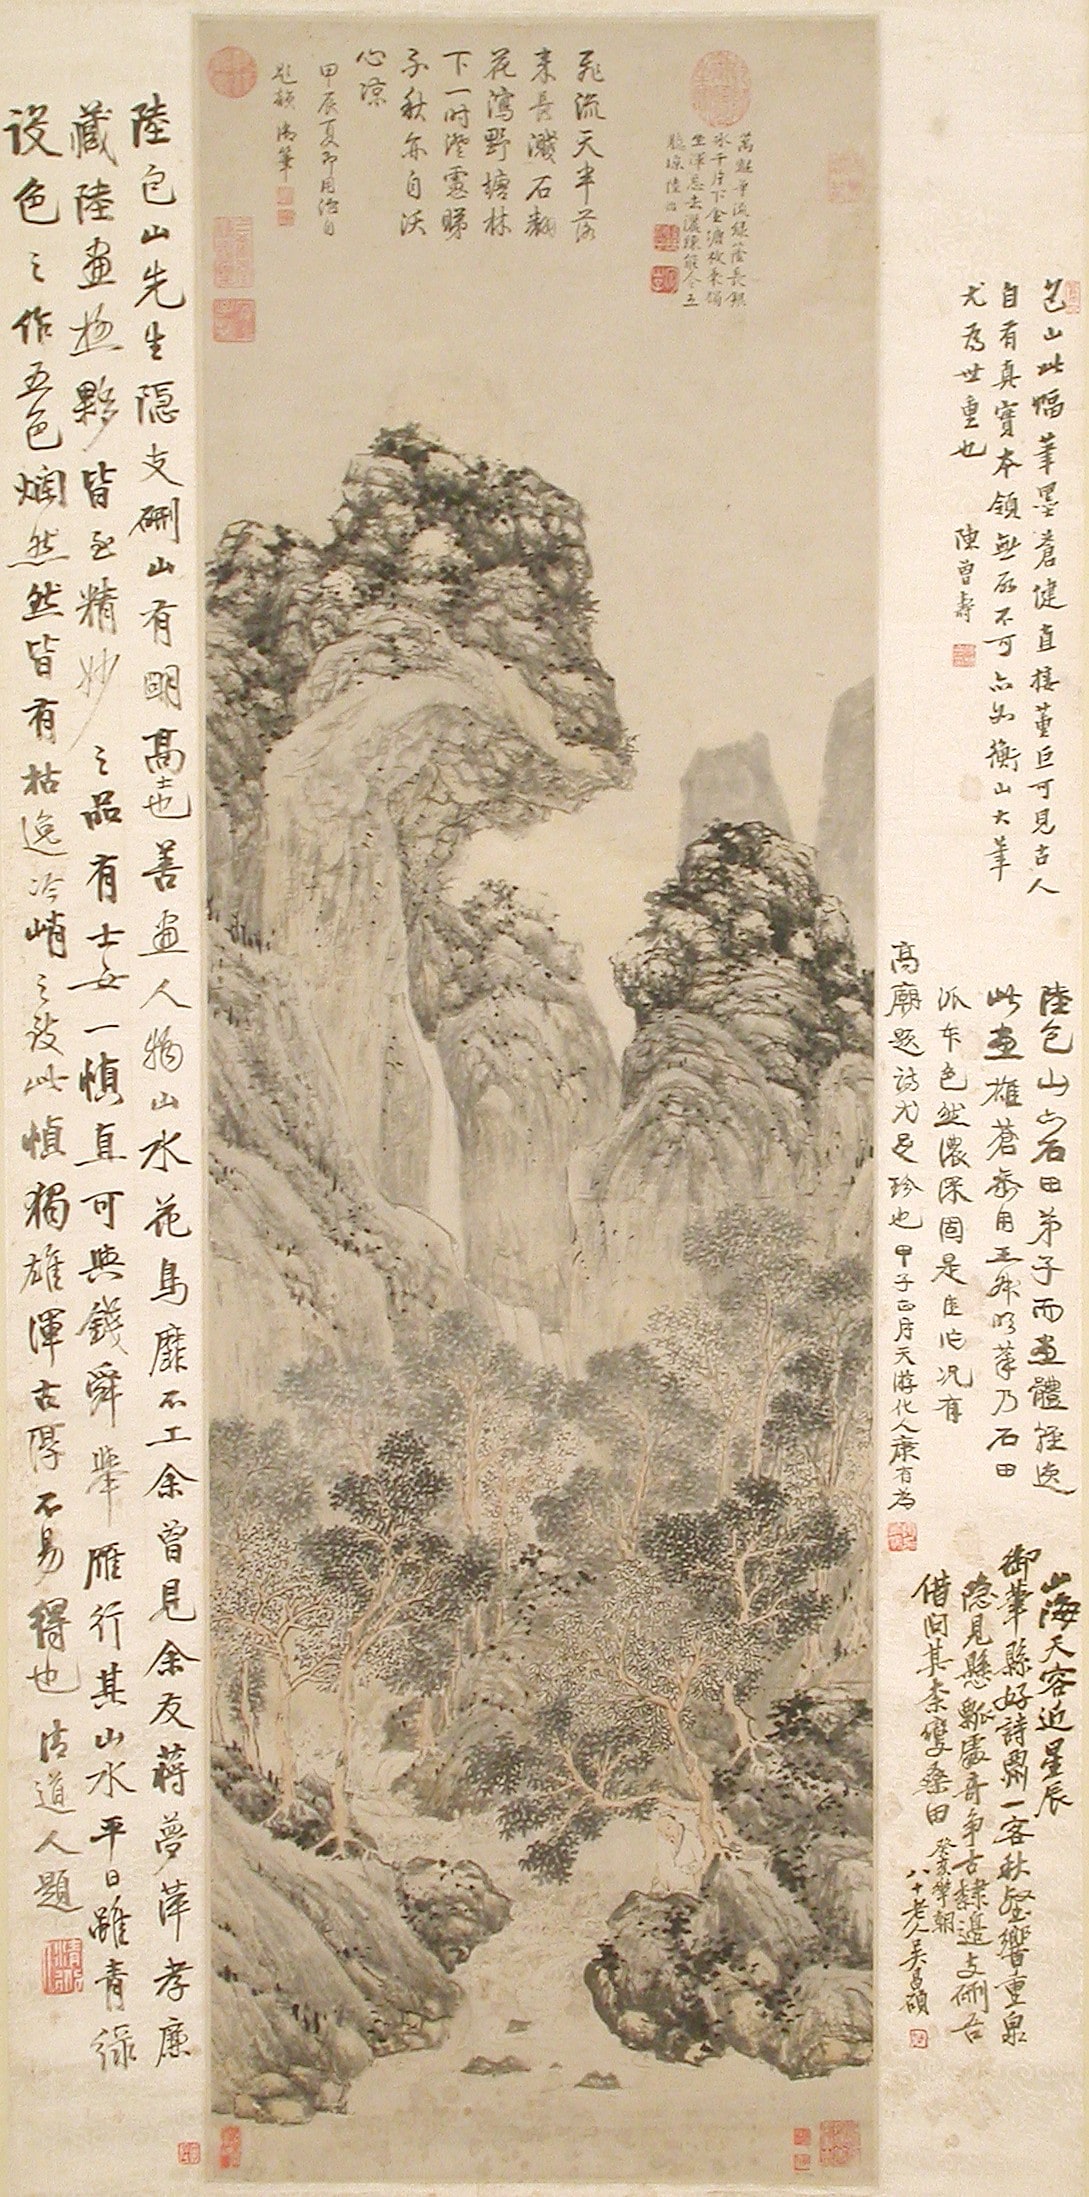 飛流天半落
來長濺石翻
花瀉野塘林
下一時澄靈睇
不秋亦自沃
心涼
甲辰夏即用治自
題韻 御筆
萬壑爭流綠蔭長銀
水千片下金塘放來獨
坐渾忘去灑竦能令五
陸治
包山此幅筆墨蒼健直接董巨可見古人
自有真實本領無所不可亦如衡山大筆
尤為世重也
陳曾壽
陸包山亦石田弟子而畫體經逸
此畫雄蒼參用王叔明筆乃石田
派本色然濃深固是佳作況有
高廟題詩尤足珍也 甲子正月天游化人康有為
山海天容近星辰
御筆縣好詩關一客秋壑響重泉
隱見懸瓢處奇爭古隸邊支硎吾
借問其奈雙桑田
癸亥華朝
八十老人吳昌碩
陸包山先生隱支硎山有明高士也善畫人物山水花鳥靡不工余曾見余友蔣夢蘋孝廉
藏陸畫極夥皆至精妙之品有士女一幀直可與錢舜舉雁行其山水平日雖青綠
設色之作五色爛然然皆有枯逸冷峭之致此幀獨雄渾古厚不易得也 清道人題